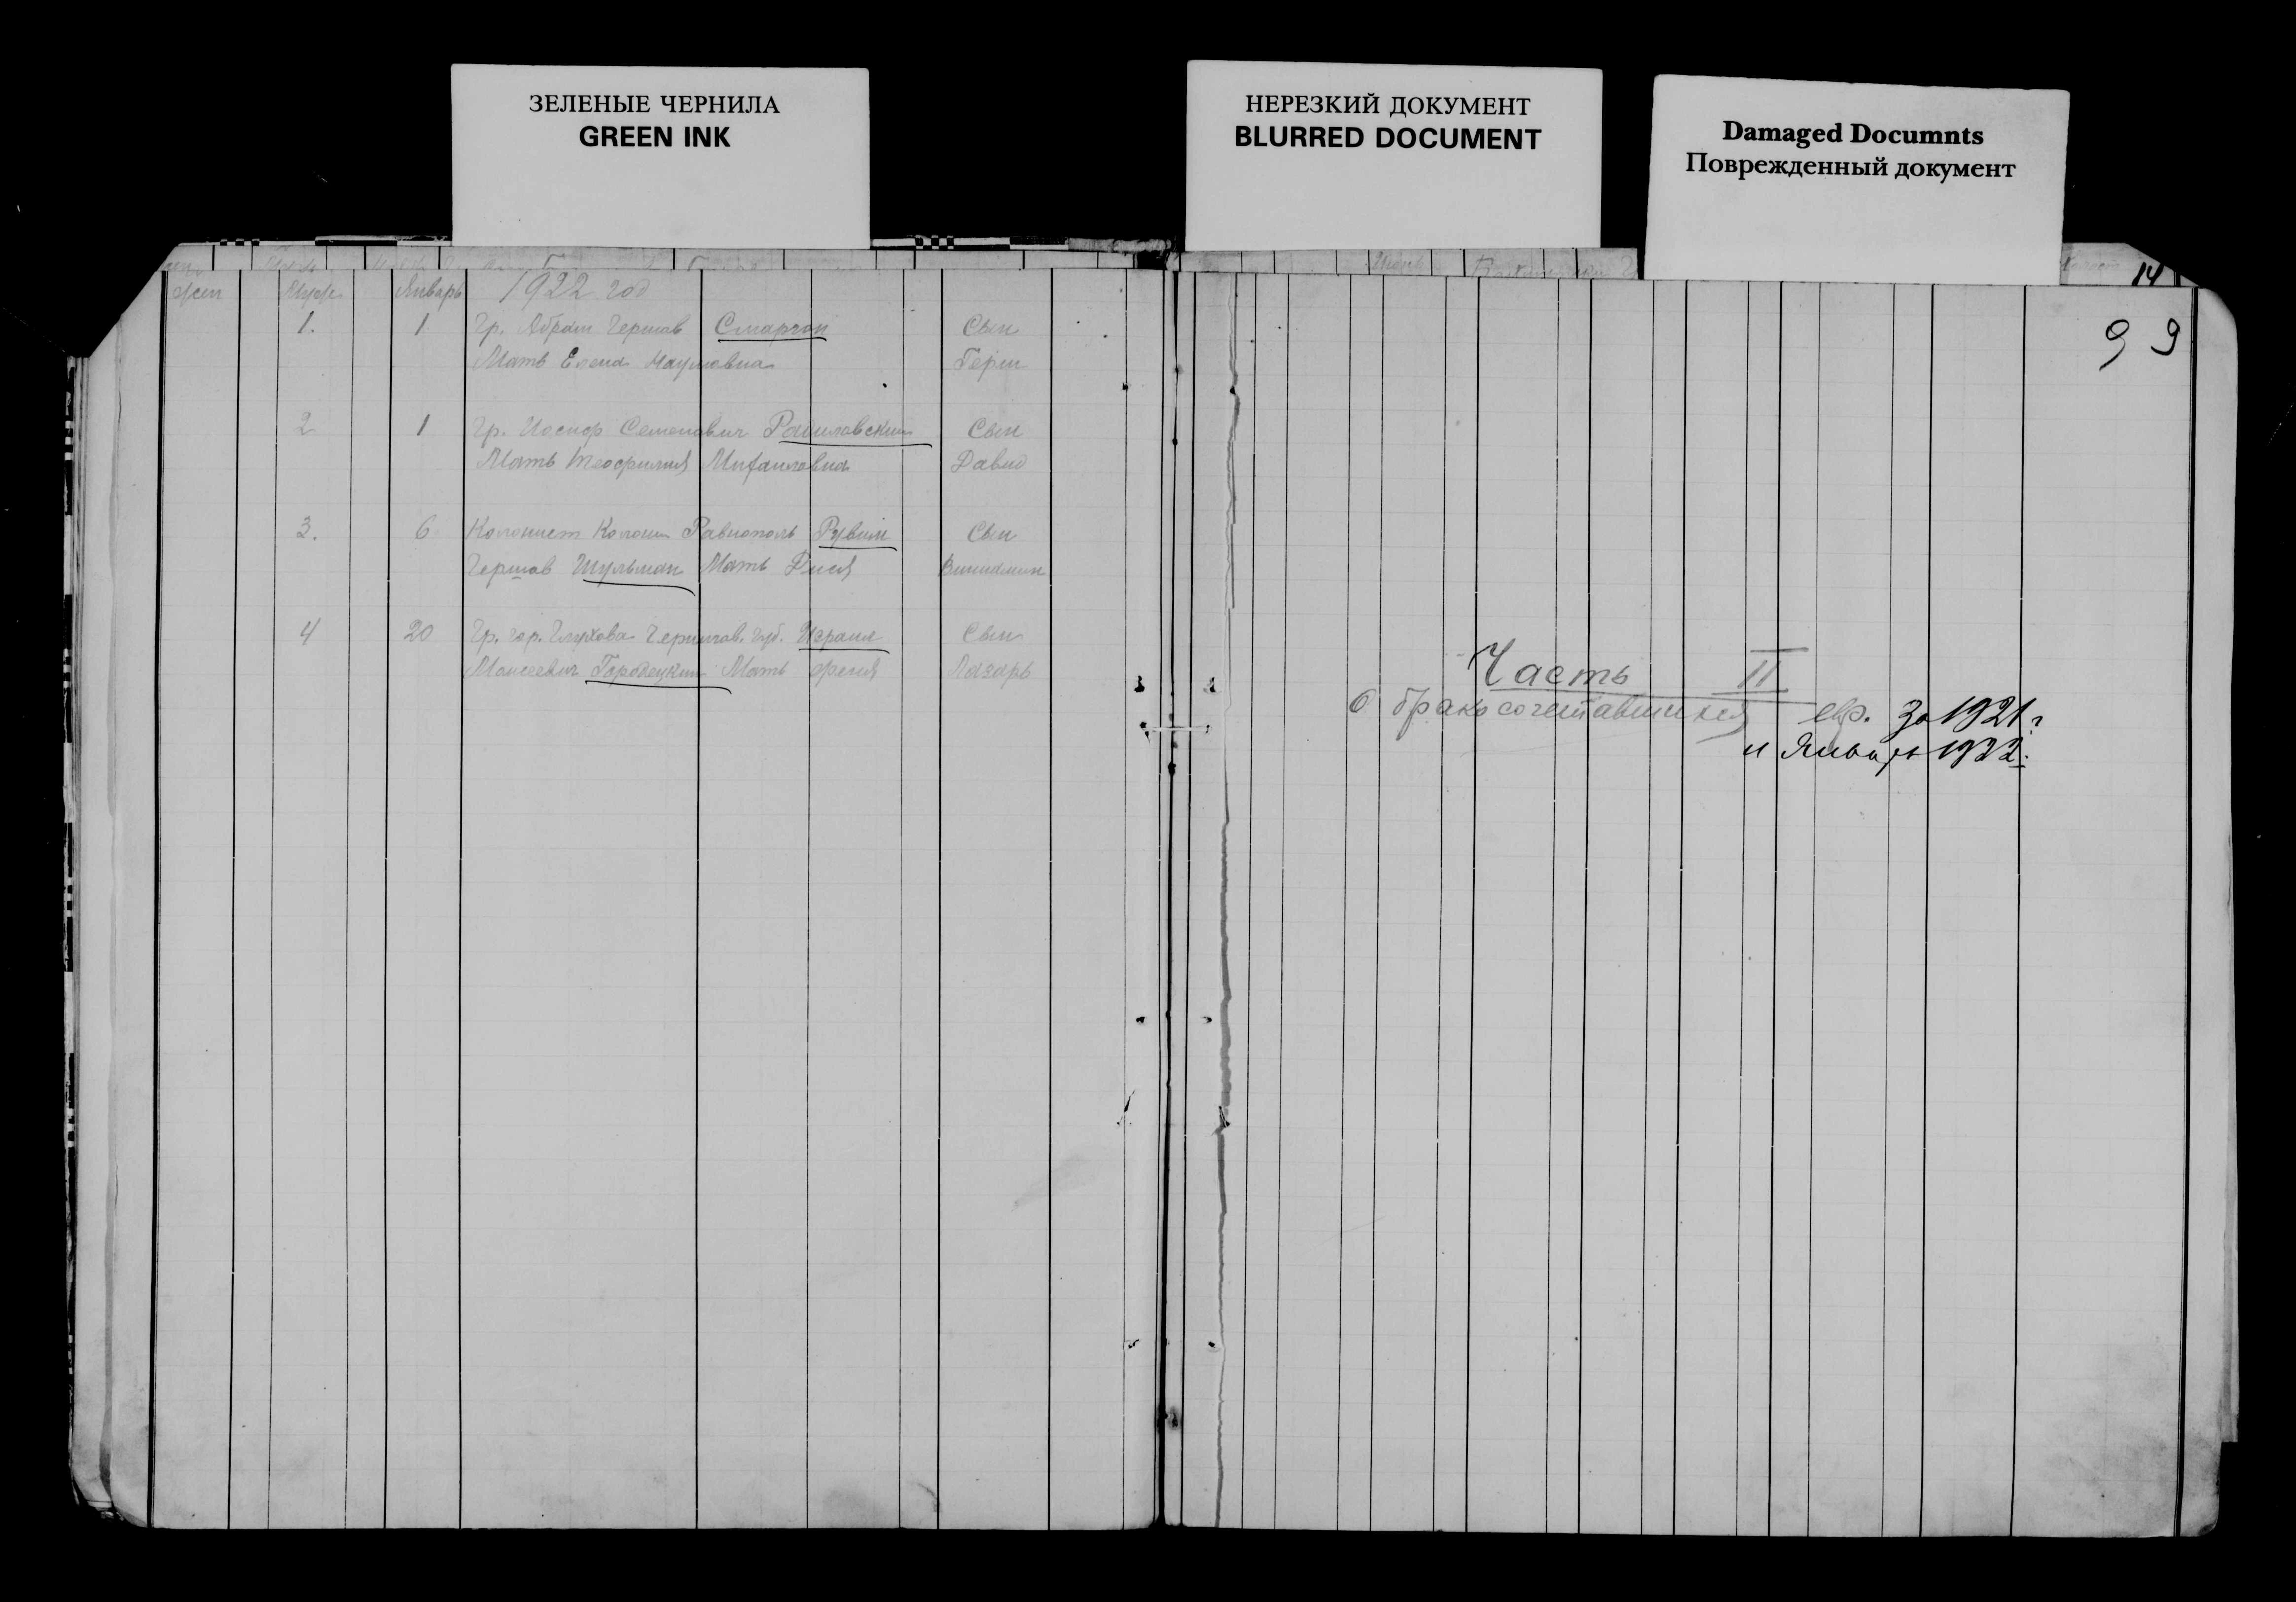 ЗЕЛЕНЫЕ ЧЕРНИЛА
GREEN INK
НЕРЕЗКИЙ ДОКУМЕНТ
BLURRED DOCUMENT
Damaged Documnts
Поврежденный документ
жен Муж. Январь 1922 год
1. 1 Гр. Абрам Гершов Сморгон Сын
Мать Елена Наумовна Герш
2 1 Гр. Иосиф Семенович Сын
Мать Теофилия Михайловна Давид
3. 6 Колонист Колонии Равнополь Рувим Сын
Гершов Шульман Мать Вениамин
4 20 Гр. гор. Глухова Чернигов. губ. Израил Сын
Моисеевич Городецкий Мать Лазарь
14
99
Часть II
О бракосочетавшихся евр. за 1921 г.
и Январь 1922.